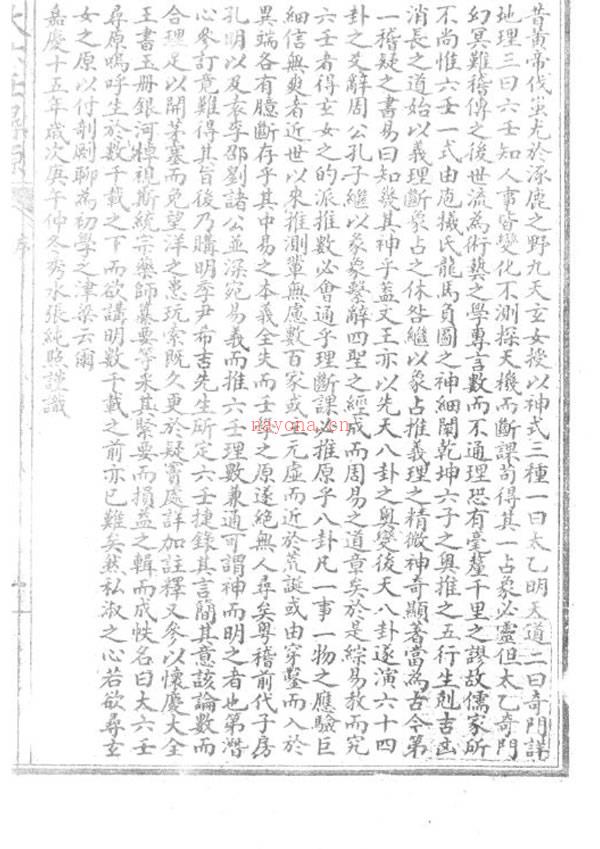 昔黃帝伐蚩尤於涿鹿之野九天玄女授以神式三種一曰太乙明天道二曰奇門詳
地理三曰六壬知人事皆變化不測探天機而斷課苟得其一占象必靈但太乙奇門
幻冥難稽傳之後世流為術藝之學專言數而不通理恐有毫釐千里之謬故儒家所
不尚惟六壬一式由庖犧氏龍馬負圖之神細闡乾坤六子之奧推之五行生剋吉凶
消長之道始以義理斷象占之休咎繼以象占推義理之精微神奇顯著當為古今第
一稽疑之書易曰知幾其神乎蓋文王亦以先天八卦之奧變後天八卦遂演六十四
卦之爻辭周公孔子繼以彖象繫辭四聖之經成而周易之道章矣於是綜易教而究
六壬者得玄女之的派推數必會通乎理斷課必推原乎八卦凡一事一物之應驗巨
細信無爽者近世以來推測輩無慮數百家或主元虛而近於荒誕或由穿鑿而入於
異端各有臆斷存乎其中易之本義全失而壬學之原遂絕無人尋矣粵稽前代子房
孔明以及袁李邵劉諸公並深究易義而推六壬理數兼通可謂神而明之者也第潛
心參訂竟難得其旨後乃購明季尹希吉先生所定六壬捷錄其言簡其意該論數而
合理足以開茅塞而免望洋之患玩索既久更於疑竇處詳加註釋又參以懷慶大全
王書玉册銀河棹視斯統宗藥師纂要等來其緊要而損益之輯而成帙名曰大六壬
尋原嗚呼生於數千載之下而欲講明數千載之前亦已難矣然私淑之心若欲尋玄
女之原以付剞劂聊為初學之津梁云爾
嘉慶十五年歲次庚午仲冬秀水張純照謹識
大六壬尋原
序
nayona.cn